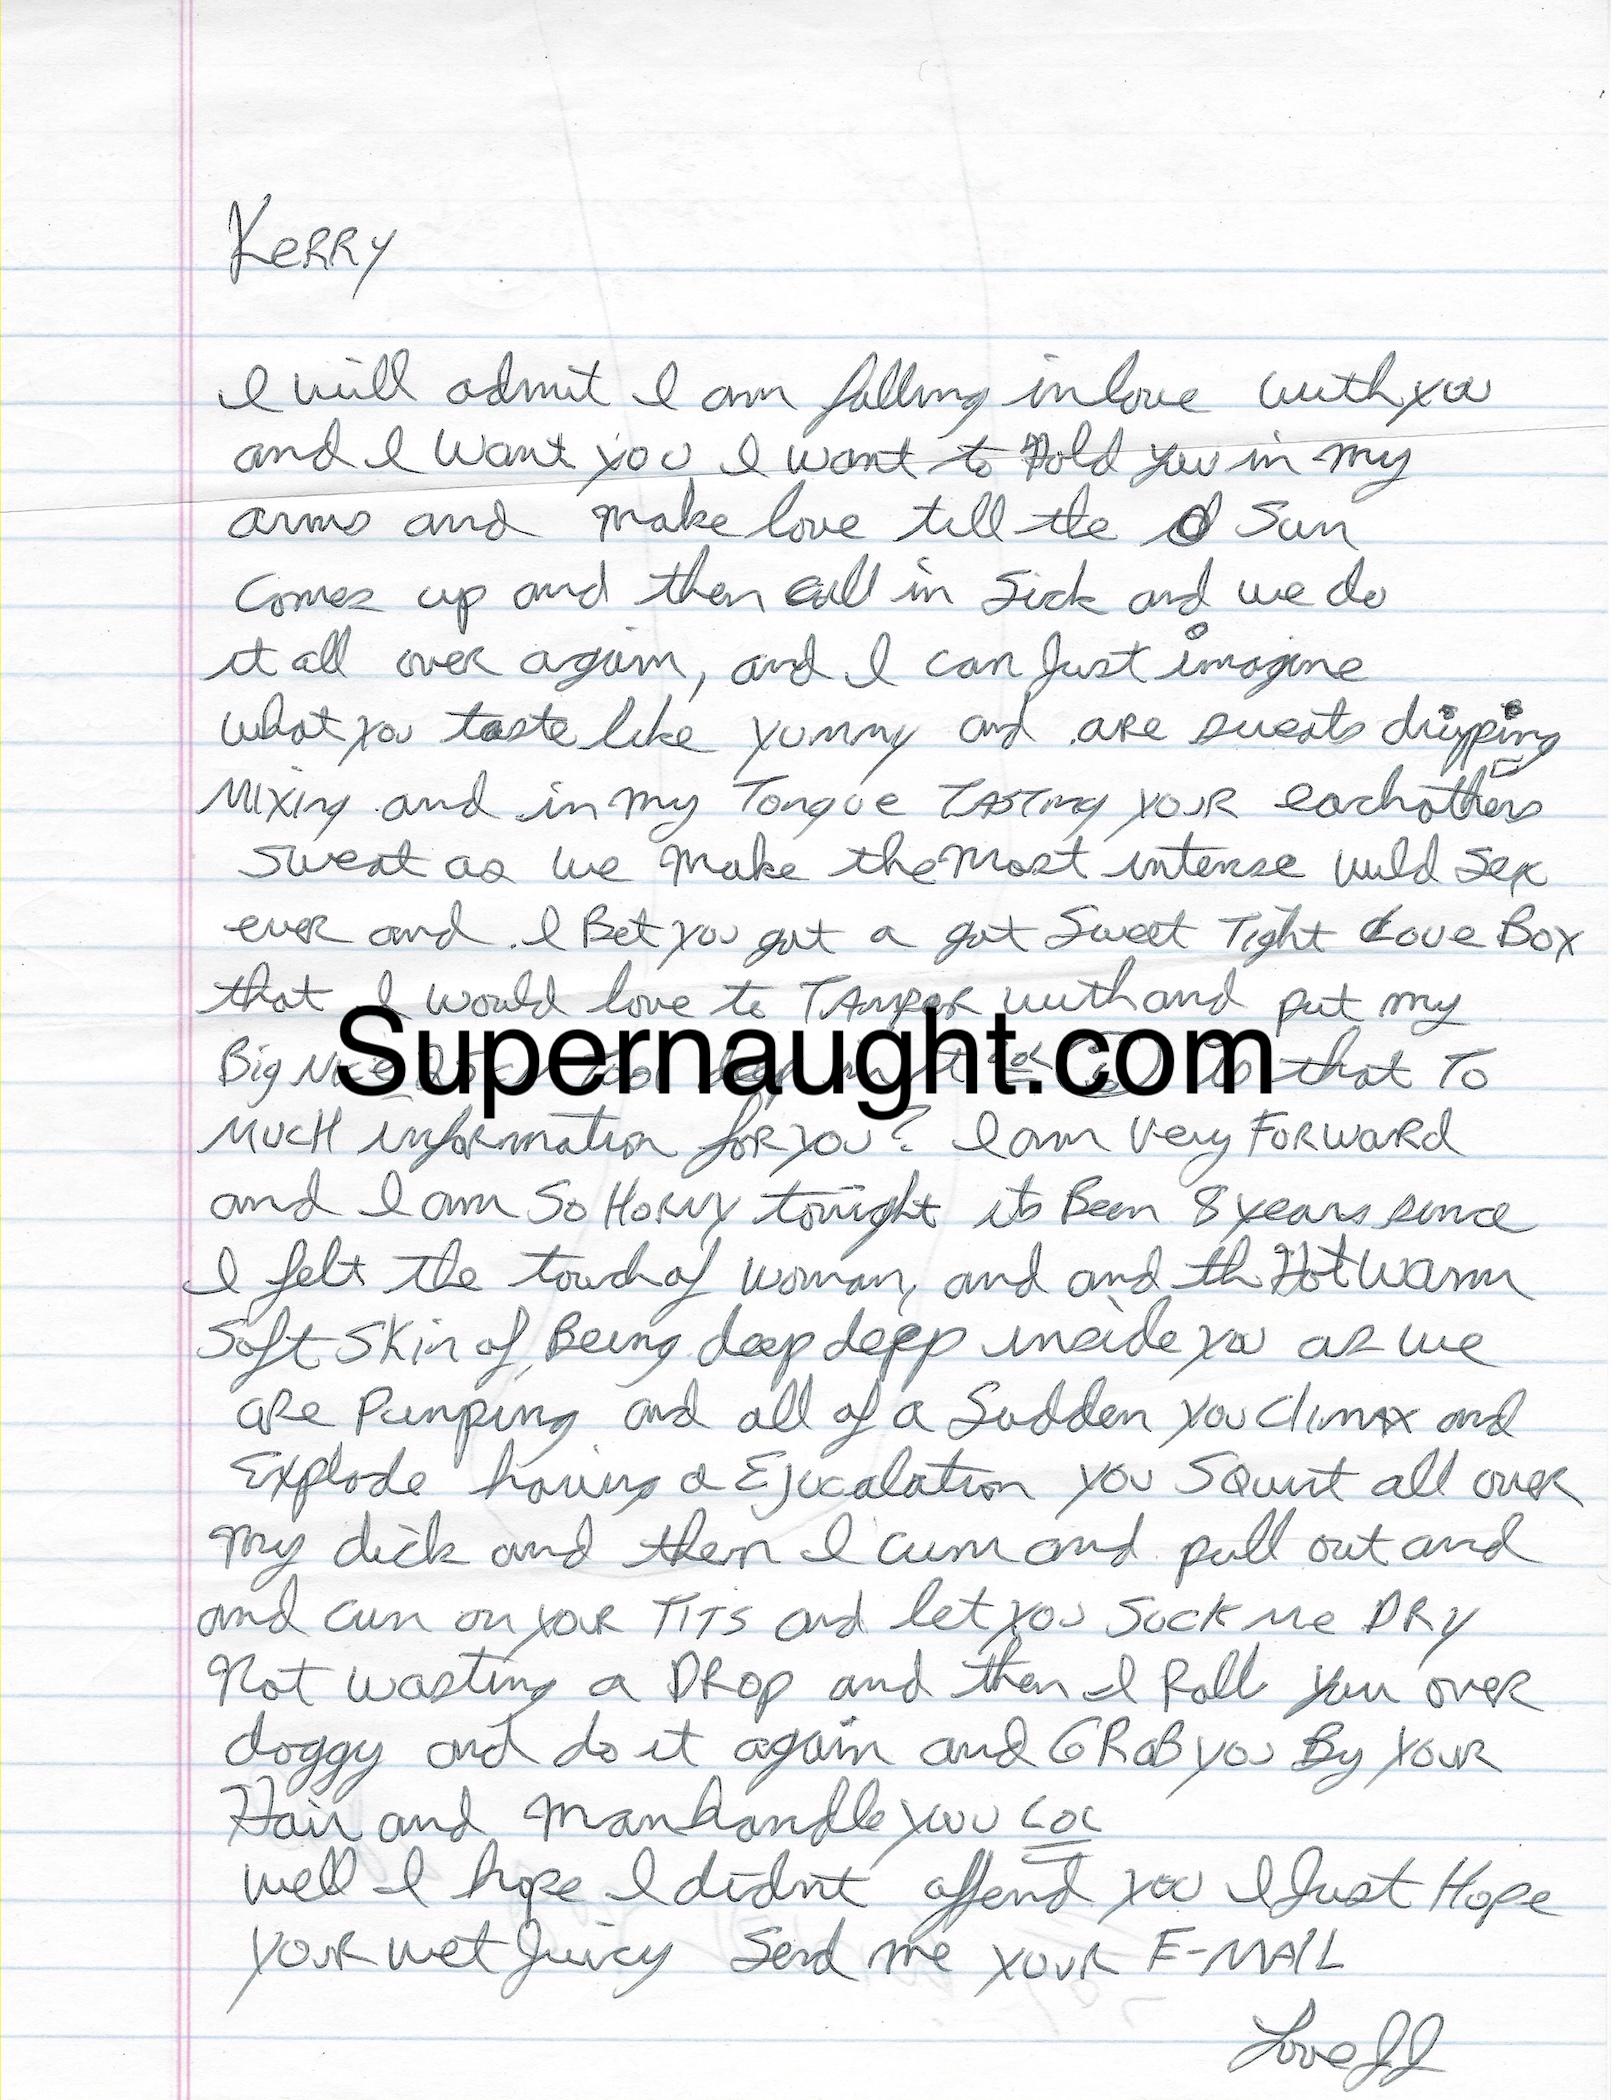 KERRY
I will admit I am falling in love with you
and I want you I want to Hold you in my
arms and make love till the Sun
comes up and then call in sick and we do
it all over again, and I can Just imagine
what you taste like yummy and are sweats dripping
Mixing and in my Tongue TASTing YOUR eachothers
sweat as we make the most intense wild sex
ever and I Bet you got a got Sweet Tight Love Box
that I would love to TAMPER with and put my
Supernaught.com
Big that To
MUCH information for you? I am Very FORWARd
and I am So HORNY tonight its Been 8 years since
I felt the touch of woman, and and th Hot WARM
Soft SKin of Being deep deep inside you as we
are Pumping and all of a Sudden you Climax and
Explode having a Ejucalation you Squirt all over
my dick and then I cum and pull out and
and cum on your TITS and let you SUCK Me DRY
Not wasting a DROP and then I Roll you over
doggy and do it again and GRaB you By YOUR
Hair and Manhandle you LOL
well I hope I didnt offend you I Just Hope
YOUR wet Juicy Send me YOUR E-MAIL
Love JJ